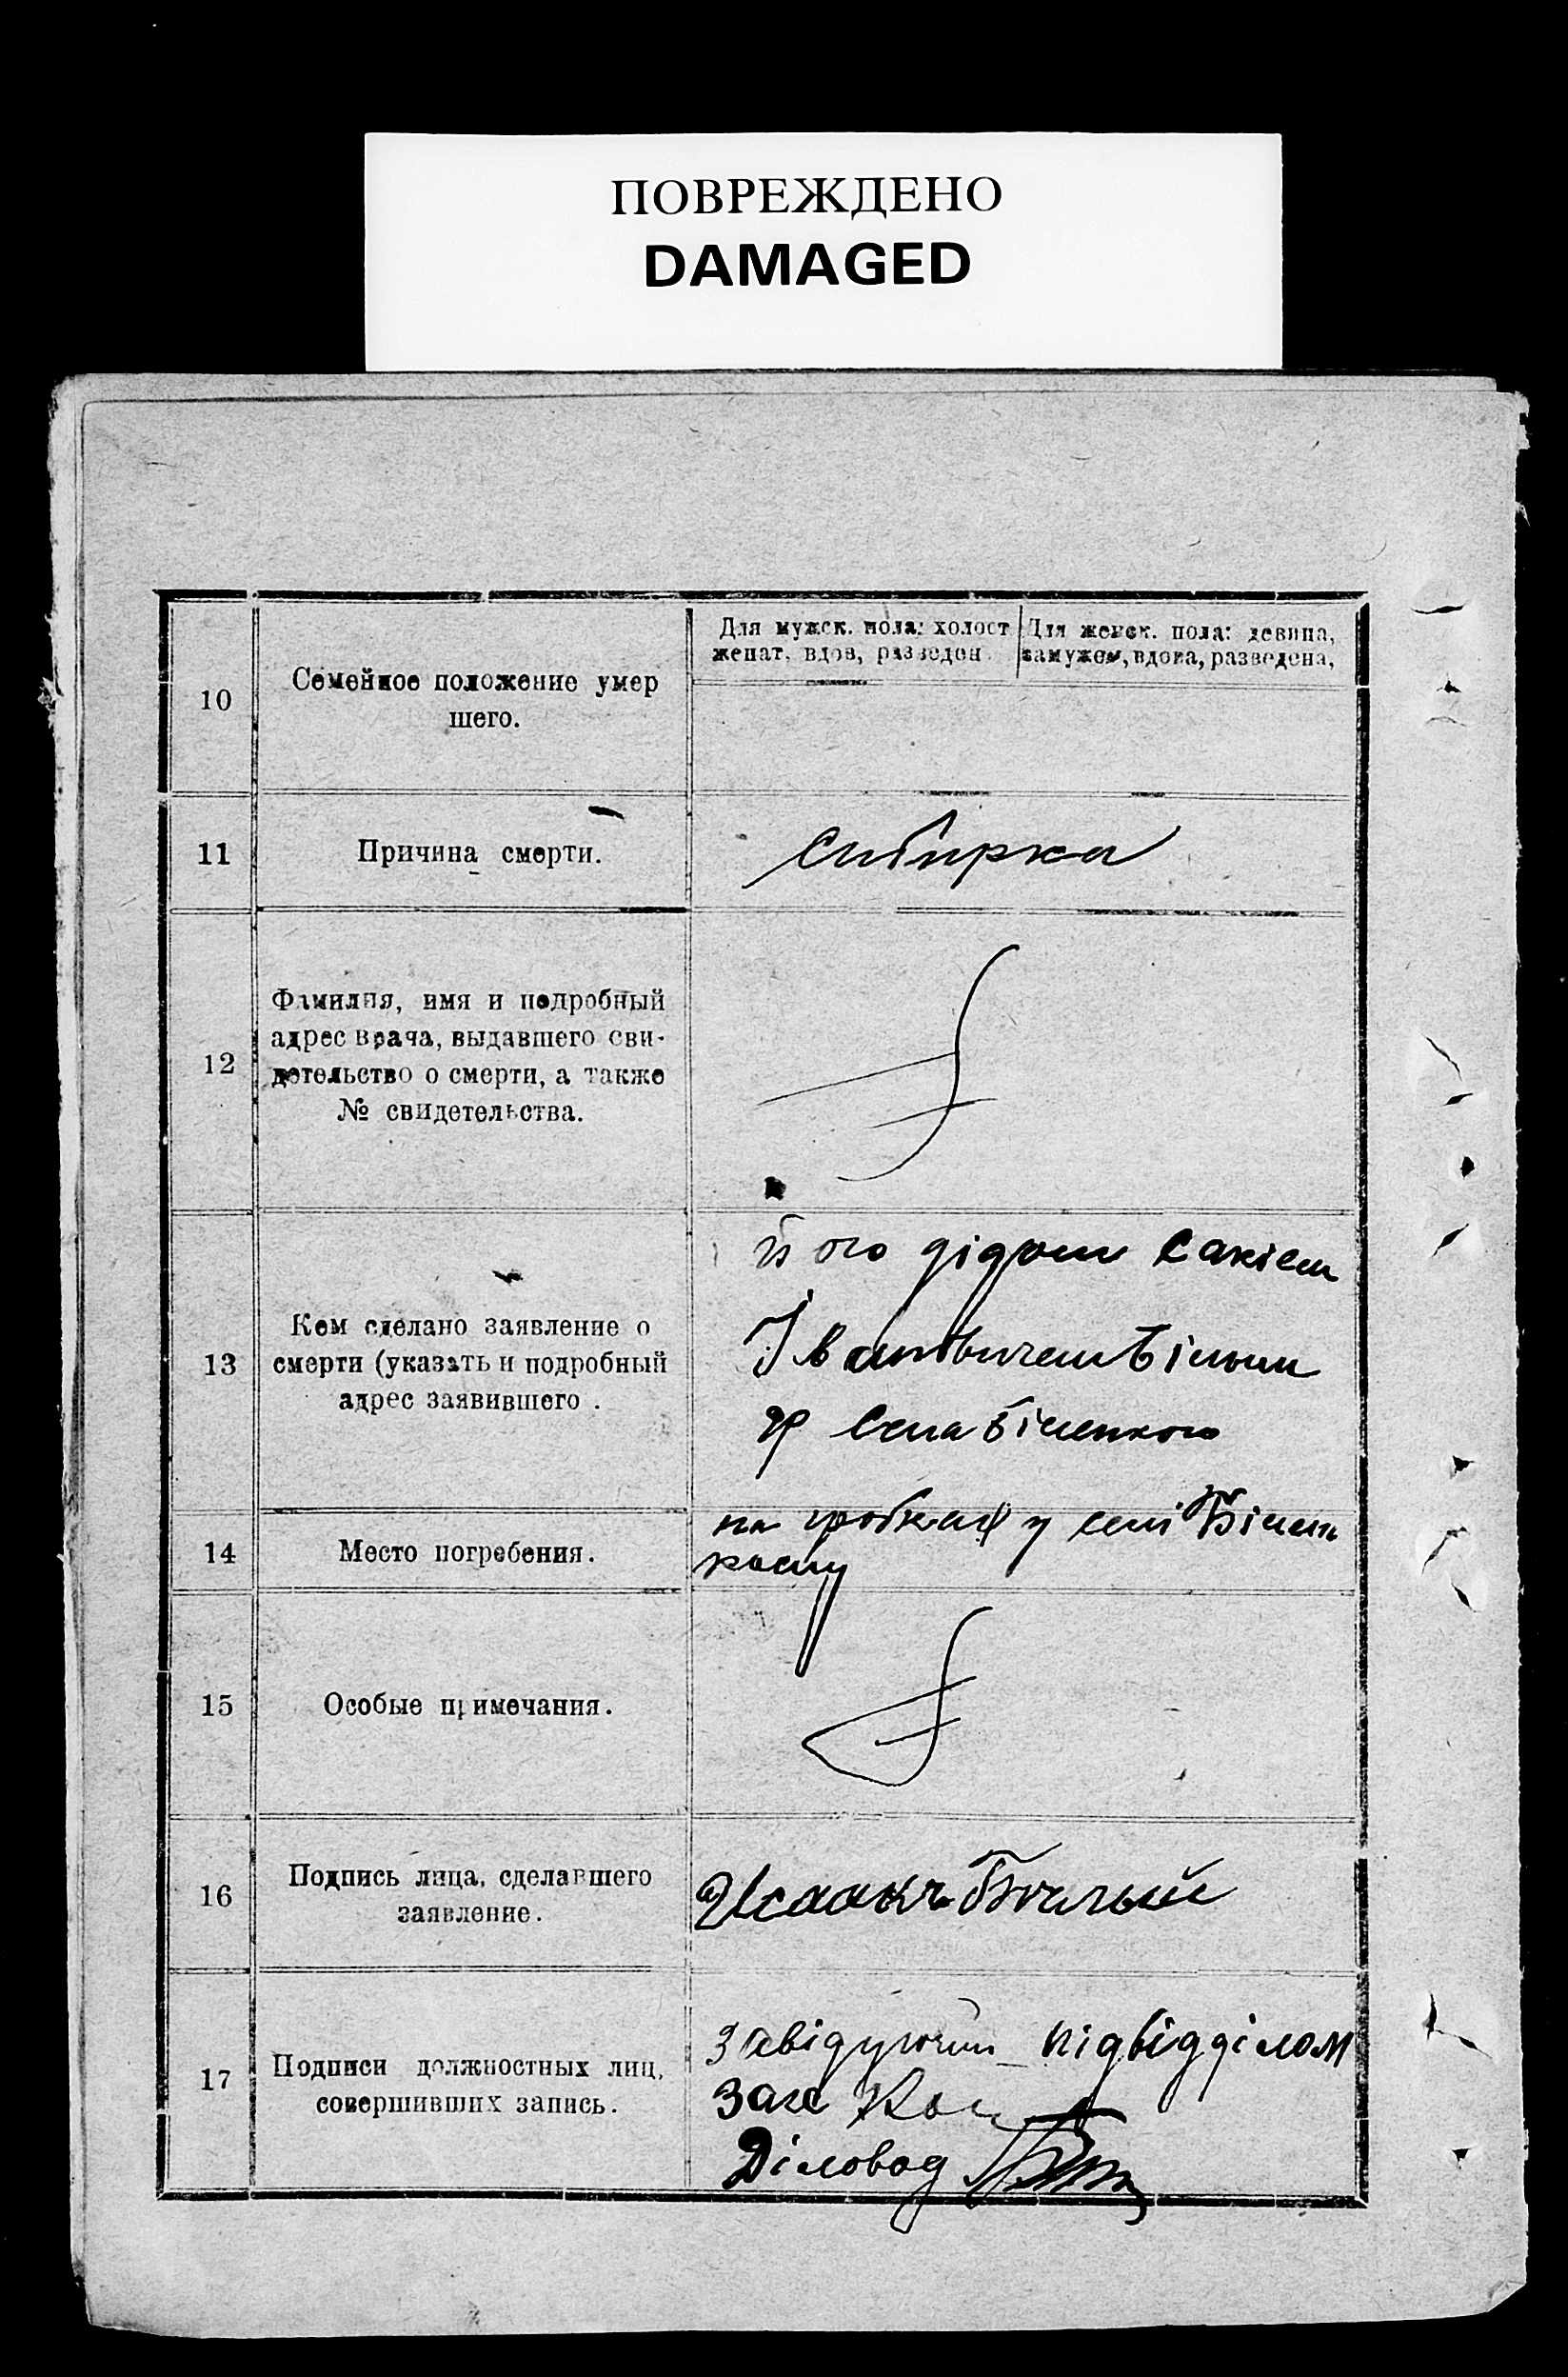 ПОВРЕЖДЕНО
DAMAGED
10
Семейное положение умер
шего.
Для мужск. пола: холост
женат, вдов, разведен
Для женск. пола: девица,
замужем, вдова, разведена,
11
Причина смерти.
сибирка
12
Фамилия, имя и подробный
адрес врача, выдавшего сви-
детельство о смерти, а также
№ свидетельства.
13
Кем сделано заявление о
смерти (указать и подробный
адрес заявившего .
його дідом
Івановичем Білим
гр Села Біленького
14
Место погребения.
на гробках у селі Білень
кому
15
Особые примечания.
16
Подпись лица, сделавшего
заявление.
Исаакъ
17
Подписи должностных лиц,
совершивших запись.
Завідуючий підвідділом
Загс
Діловод